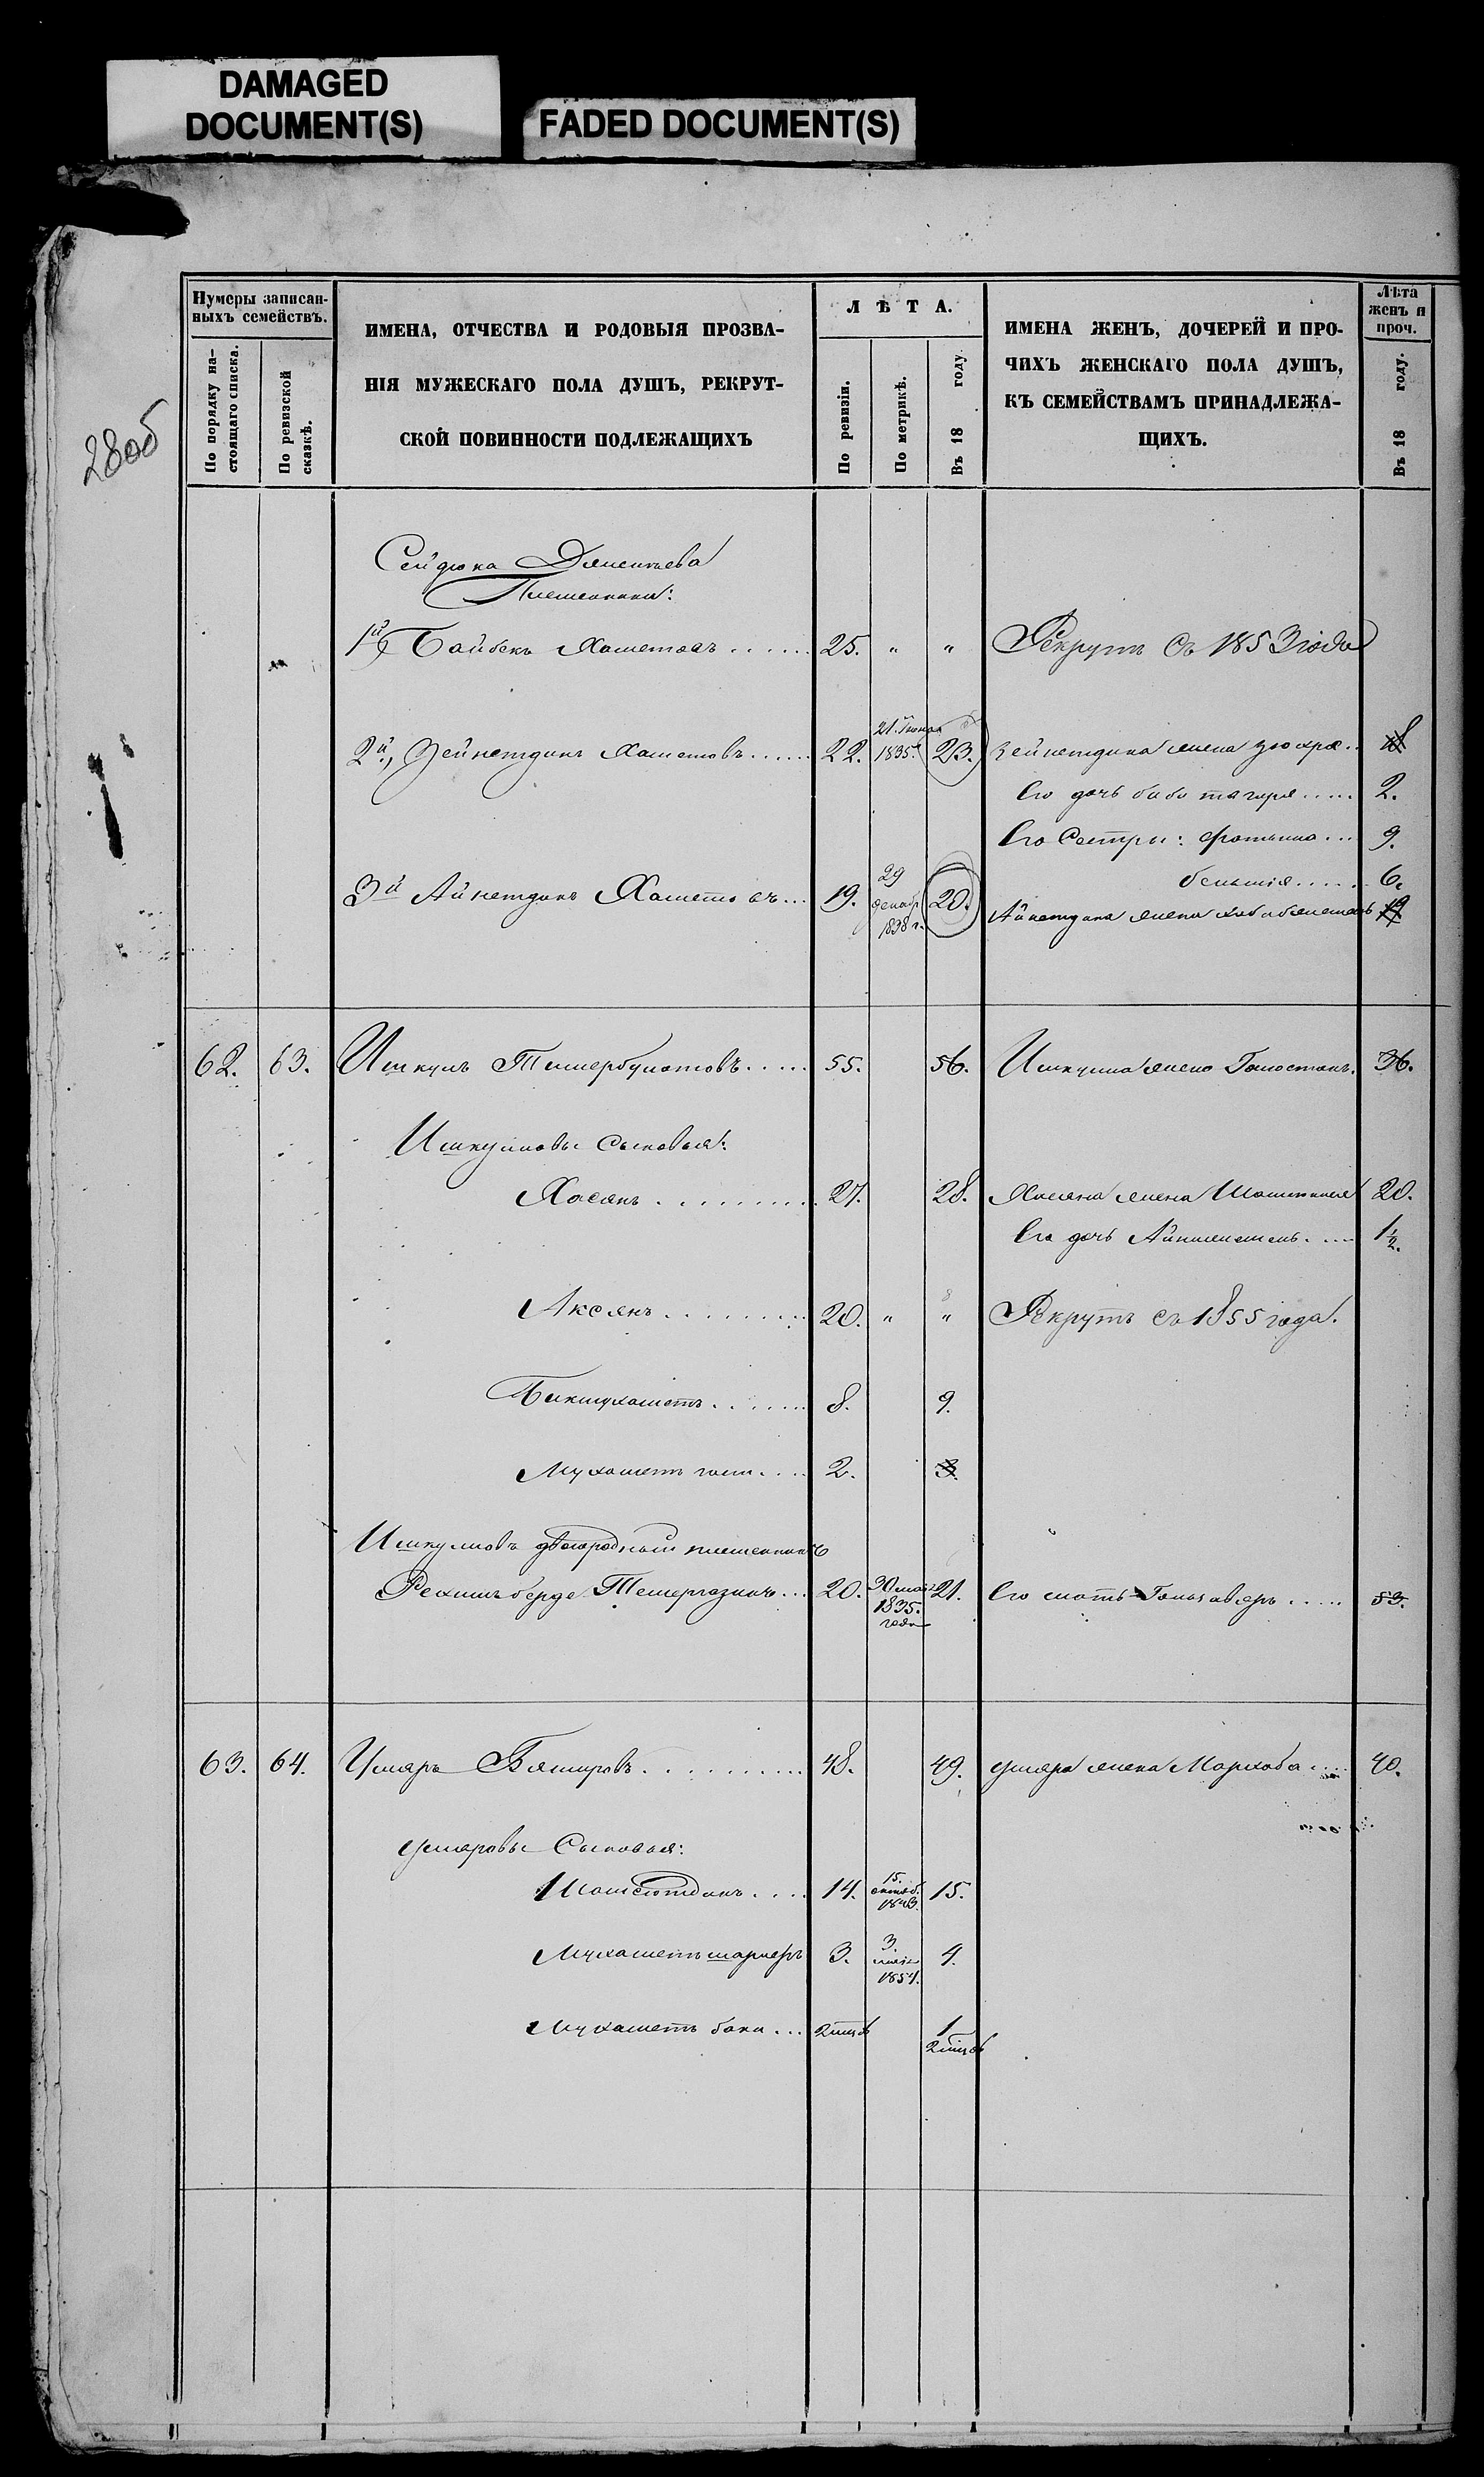 DAMAGED
DOCUMENT(S)
FADED DOCUMENT(S)
28об
Нумеры записан-
ныхъ семействъ.
По порядку на-
стоящаго списка.
По ревизской
сказкѣ.
ИМЕНА, ОТЧЕСТВА И РОДОВЫЯ ПРОЗВА-
НІЯ МУЖЕСКАГО ПОЛА ДУШЪ, РЕКРУТ-
СКОЙ ПОВИННОСТИ ПОДЛЕЖАЩИХЪ
ЛѢТА.
По ревизіи.
По метрикѣ.
Въ 18 году.
ИМЕНА ЖЕНЪ, ДОЧЕРЕЙ И ПРО-
ЧИХЪ ЖЕНСКАГО ПОЛА ДУШЪ,
КЪ СЕМЕЙСТВАМЪ ПРИНАДЛЕЖА-
ЩИХЪ.
Лѣта
женъ и
проч.
Въ 18 году.
Сейдюка
Племянники:
1й Байбекъ Хаметовъ 25. " " Рекрутъ съ 1853 года
2й, Зейнетдинъ Хаметовъ 22. 21. Іюня 1835. 23. Зейнетдина жена Зюхра 18
Его дочь 2.
Его Сестры: Фатыма 9.
6.
3й Айнетдинъ Хаметовъ 19. 29 декабр 1838 г. 20. Айнетдина жена 19
62. 63. Ишкулъ Темербулатовъ 55. 56. Ишкула жена 36.
Ишкуловы Сыновья:
Хасянъ 27. 28. Хасяна жена 20.
Его дочь 1½.
Аксянъ 20. " " Рекрутъ съ 1855 года.
Бикмухаметъ 8. 9.
Мухаметъ 2. 3.
Ишкуловъ двоюродный племянникъ
Темергазинъ 20. 30 1835. года 21. Его мать 53.
63. 64. Умяръ Бямировъ 48. 49. Умяра жена Мархаба 40.
Умяровы Сыновья:
Шамсютдинъ 14. 15. октяб. 1843. 15.
3. 3. 1854. 4.
Мухаметъ баки 2 мѣц 1 2 мѣц